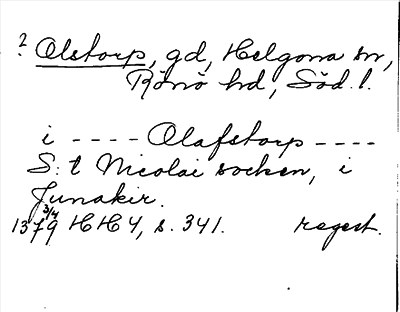 ? Olstorp, gd, Helgona sn,
Rönö hd, Söd. l.
i ---- Olafstorp ----
S:t Nicolai socken, i
Junakir.
1379 3/4 HH 4, s. 341. regest.